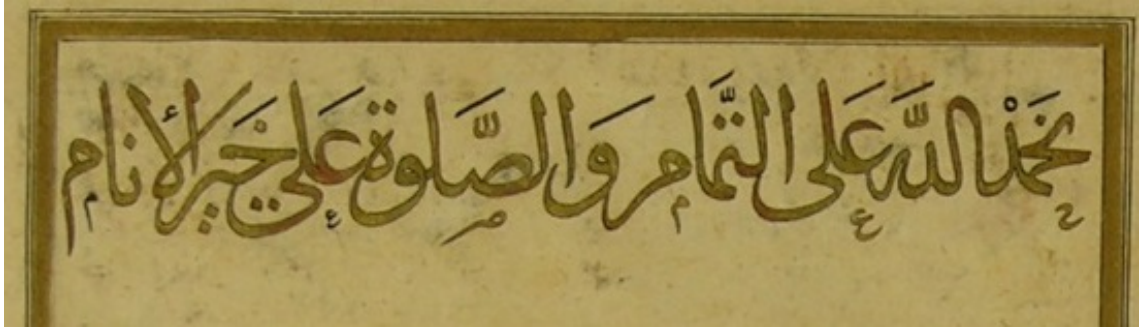 نحمد اللّٰه علی التّمام و الصّلوة علی خیر الأنام